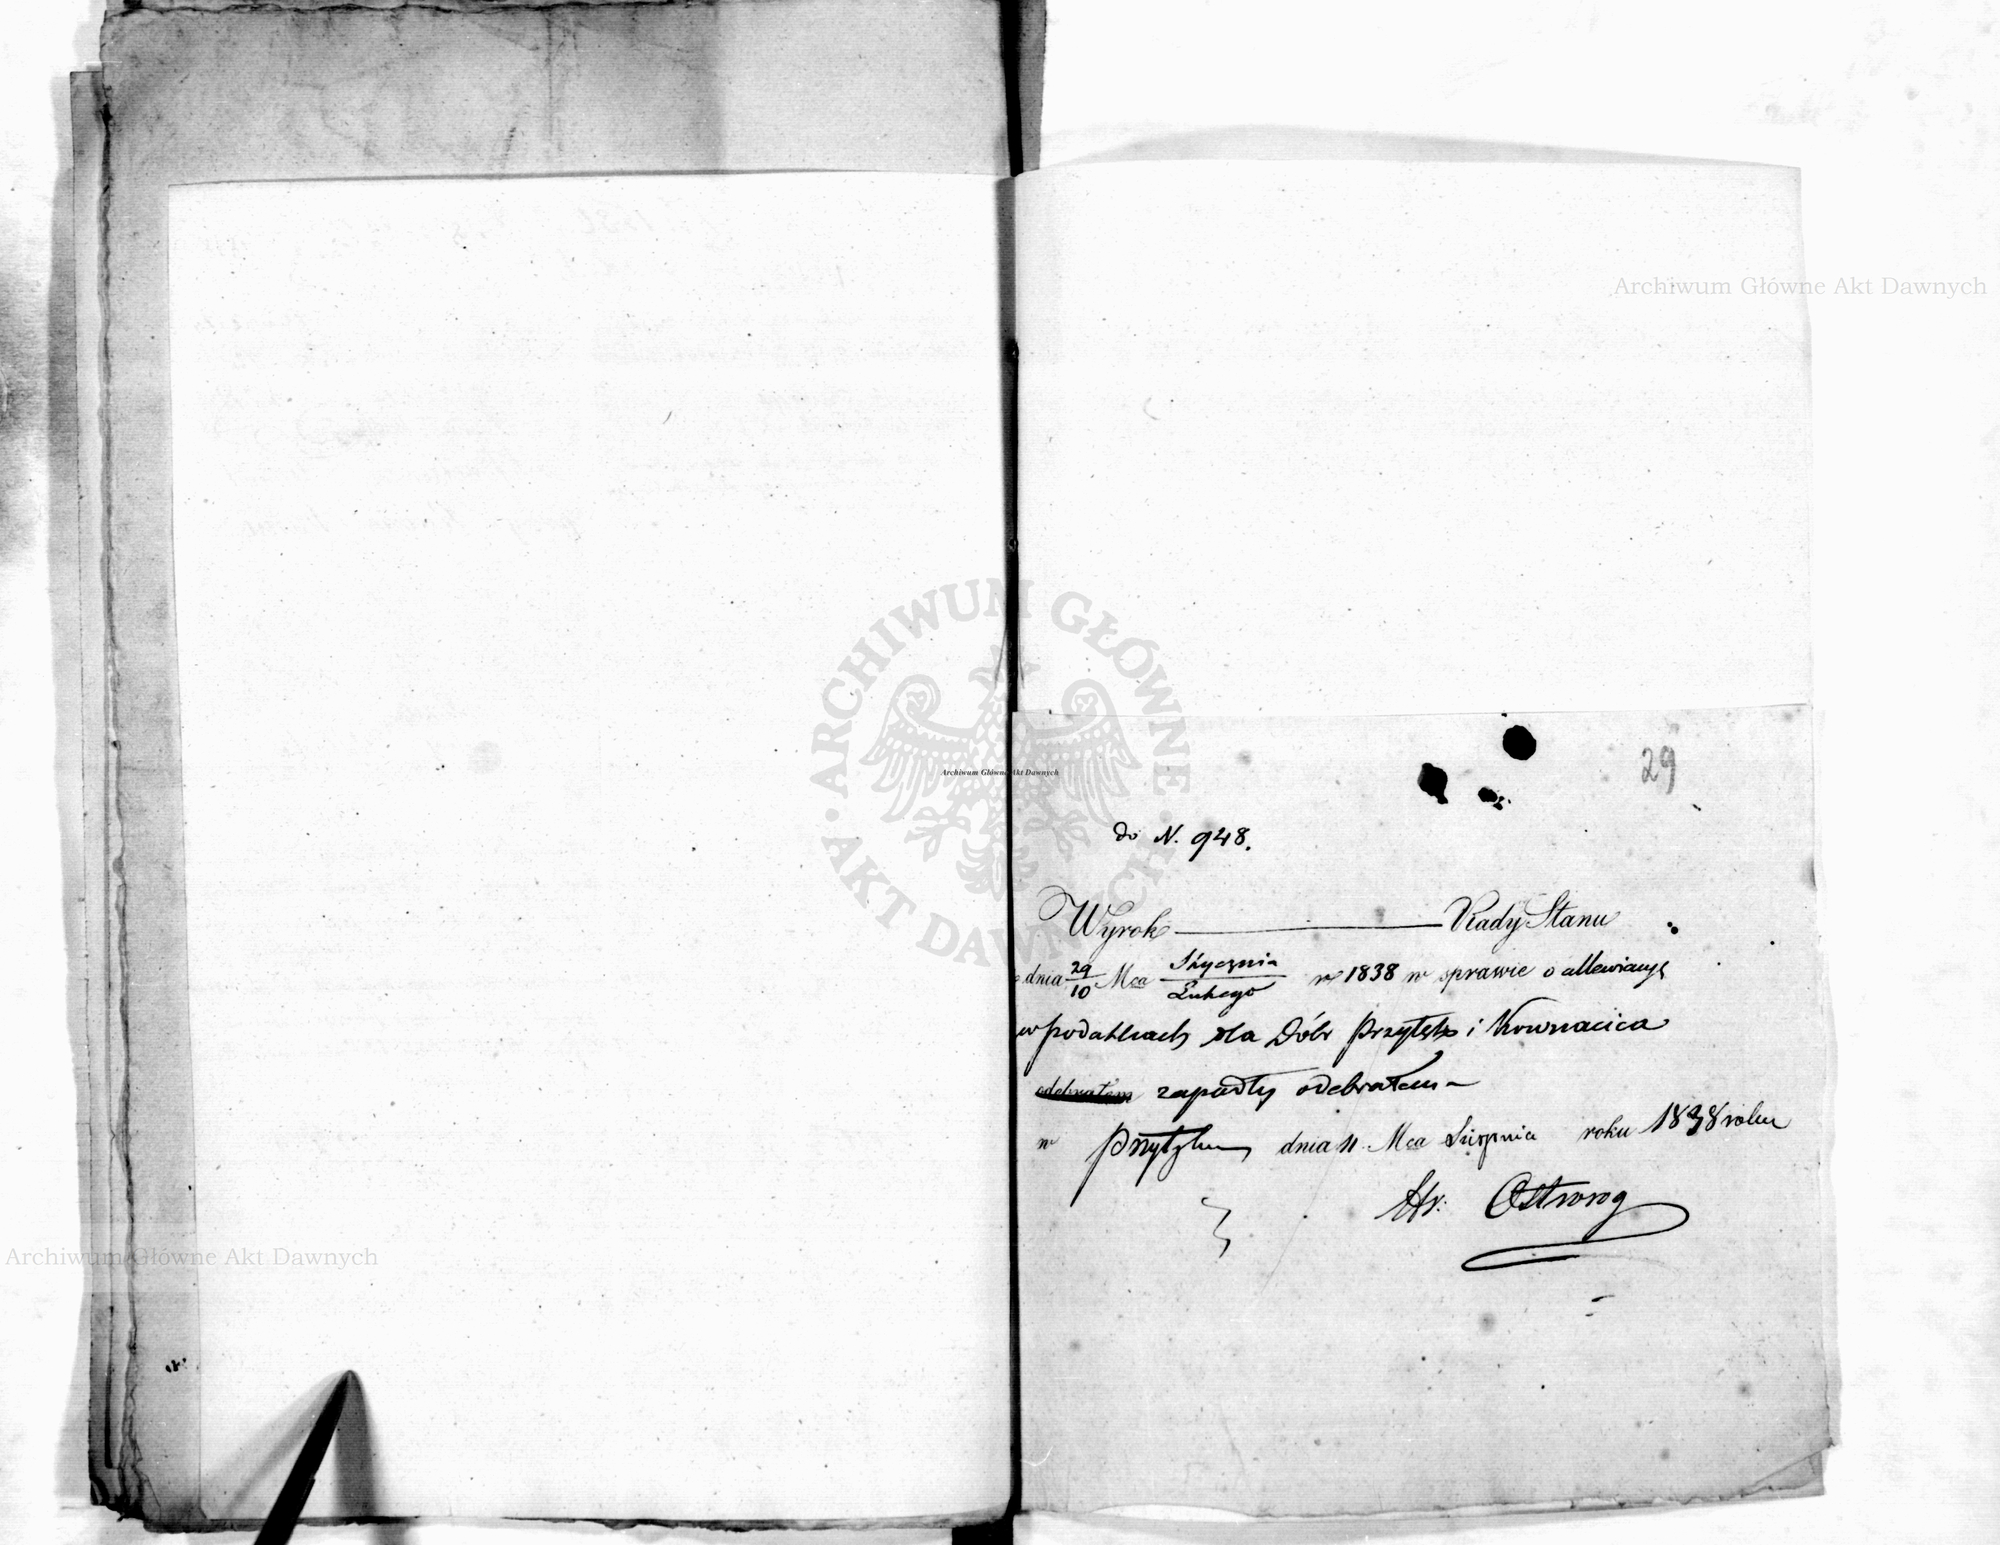 29
do N. 948.
Wyrok — Rady Stanu
z dnia 29/10 Mca Stycznia/Lutego r 1838 w sprawie o allewiacyę
w podatkach dla Dóbr Przytyk i Kownacica
odebrałem zapadły odebrałem –
w Przytyku dnia 11 Mca Sierpnia roku 1838 roku
Hr: Ostrorog
Archiwum Główne Akt Dawnych
Archiwum Główne Akt Dawnych
ARCHIWUM GŁÓWNE AKT DAWNYCH
Archiwum Główne Akt Dawnych